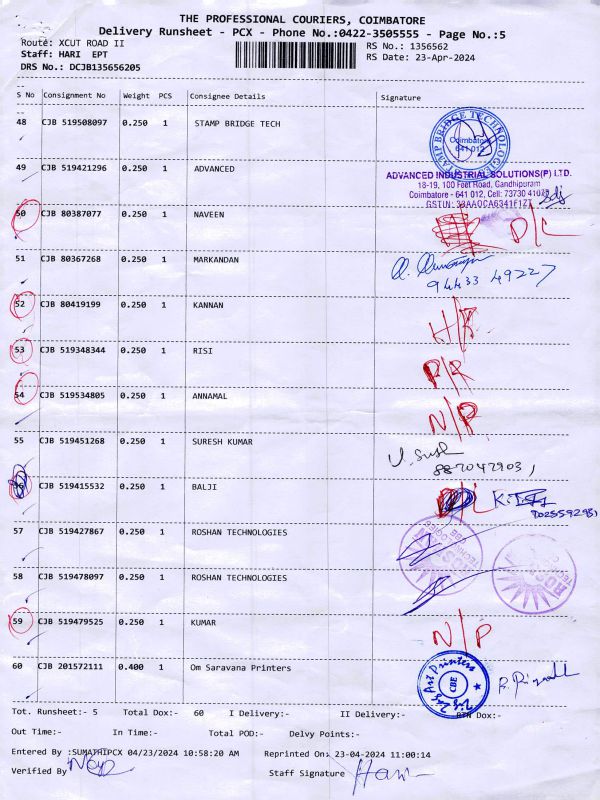 THE PROFESSIONAL COURIERS, COIMBATORE
Delivery Runsheet - PCX - Phone No.:0422-3505555 - Page No.:5
Route: XCUT ROAD II
RS No.: 1356562
Staff: HARI EPT
RS Date: 23-Apr-2024
DRS No.: DCJB135656205
S No Consignment No Weight PCS Consignee Details Signature
48 CJB 519508097 0.250 1 STAMP BRIDGE TECH
STAMP BRIDGE TECHNOLOGIES
Coimbatore
641 012
49 CJB 519421296 0.250 1 ADVANCED
ADVANCED INDUSTRIAL SOLUTIONS(P) LTD.
18-19, 100 Feet Road, Gandhipuram
Coimbatore - 641 012, Cell: 73730 41075
GSTIN: 33AAOCA6341F1ZT
50 CJB 80387077 0.250 1 NAVEEN D/L
51 CJB 80367268 0.250 1 MARKANDAN
94433 49227
52 CJB 80419199 0.250 1 KANNAN
53 CJB 519348344 0.250 1 RISI
54 CJB 519534805 0.250 1 ANNAMAL N/P
55 CJB 519451268 0.250 1 SURESH KUMAR
56 CJB 519415532 0.250 1 BALJI
57 CJB 519427867 0.250 1 ROSHAN TECHNOLOGIES
58 CJB 519478097 0.250 1 ROSHAN TECHNOLOGIES
59 CJB 519479525 0.250 1 KUMAR N/P
60 CJB 201572111 0.400 1 Om Saravana Printers
Art Printers
CBE
Tot. Runsheet:- 5 Total Dox:- 60 I Delivery:- II Delivery:- RTN Dox:-
Out Time:- In Time:- Total POD:- Delvy Points:-
Entered By :SUMATHIPCX 04/23/2024 10:58:20 AM Reprinted On: 23-04-2024 11:00:14
Verified By
Staff Signature Hari